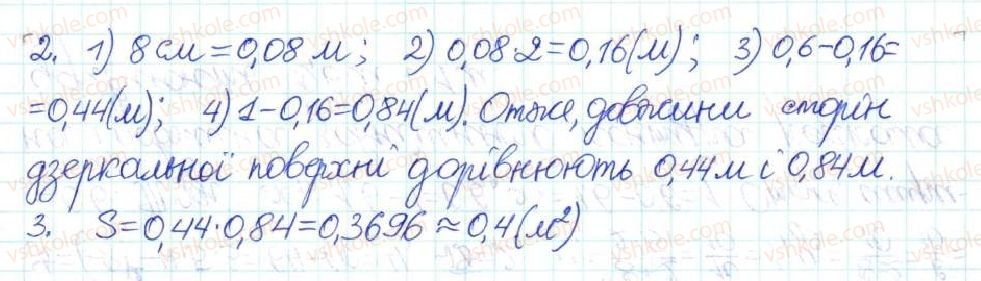 2. 1) 8 см = 0,08 м; 2) 0,08·2=0,16(м); 3) 0,6-0,16=
=0,44(м); 4) 1-0,16=0,84(м). Отже, довжини сторін
дзеркальної поверхні дорівнюють 0,44м і 0,84м.
3. S=0,44·0,84=0,3696≈0,4(м²)